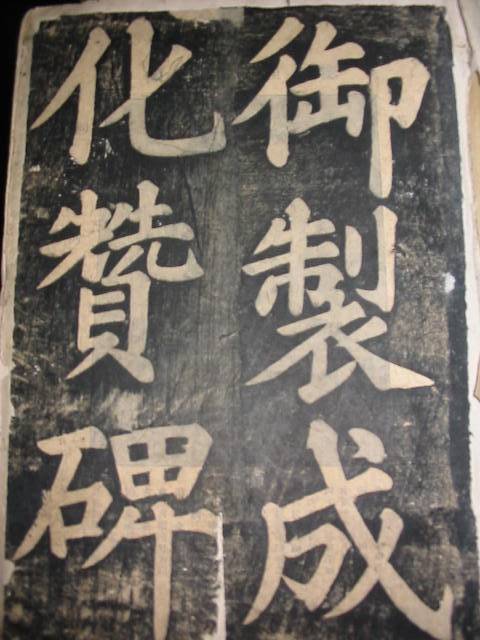 御製成
化贊碑